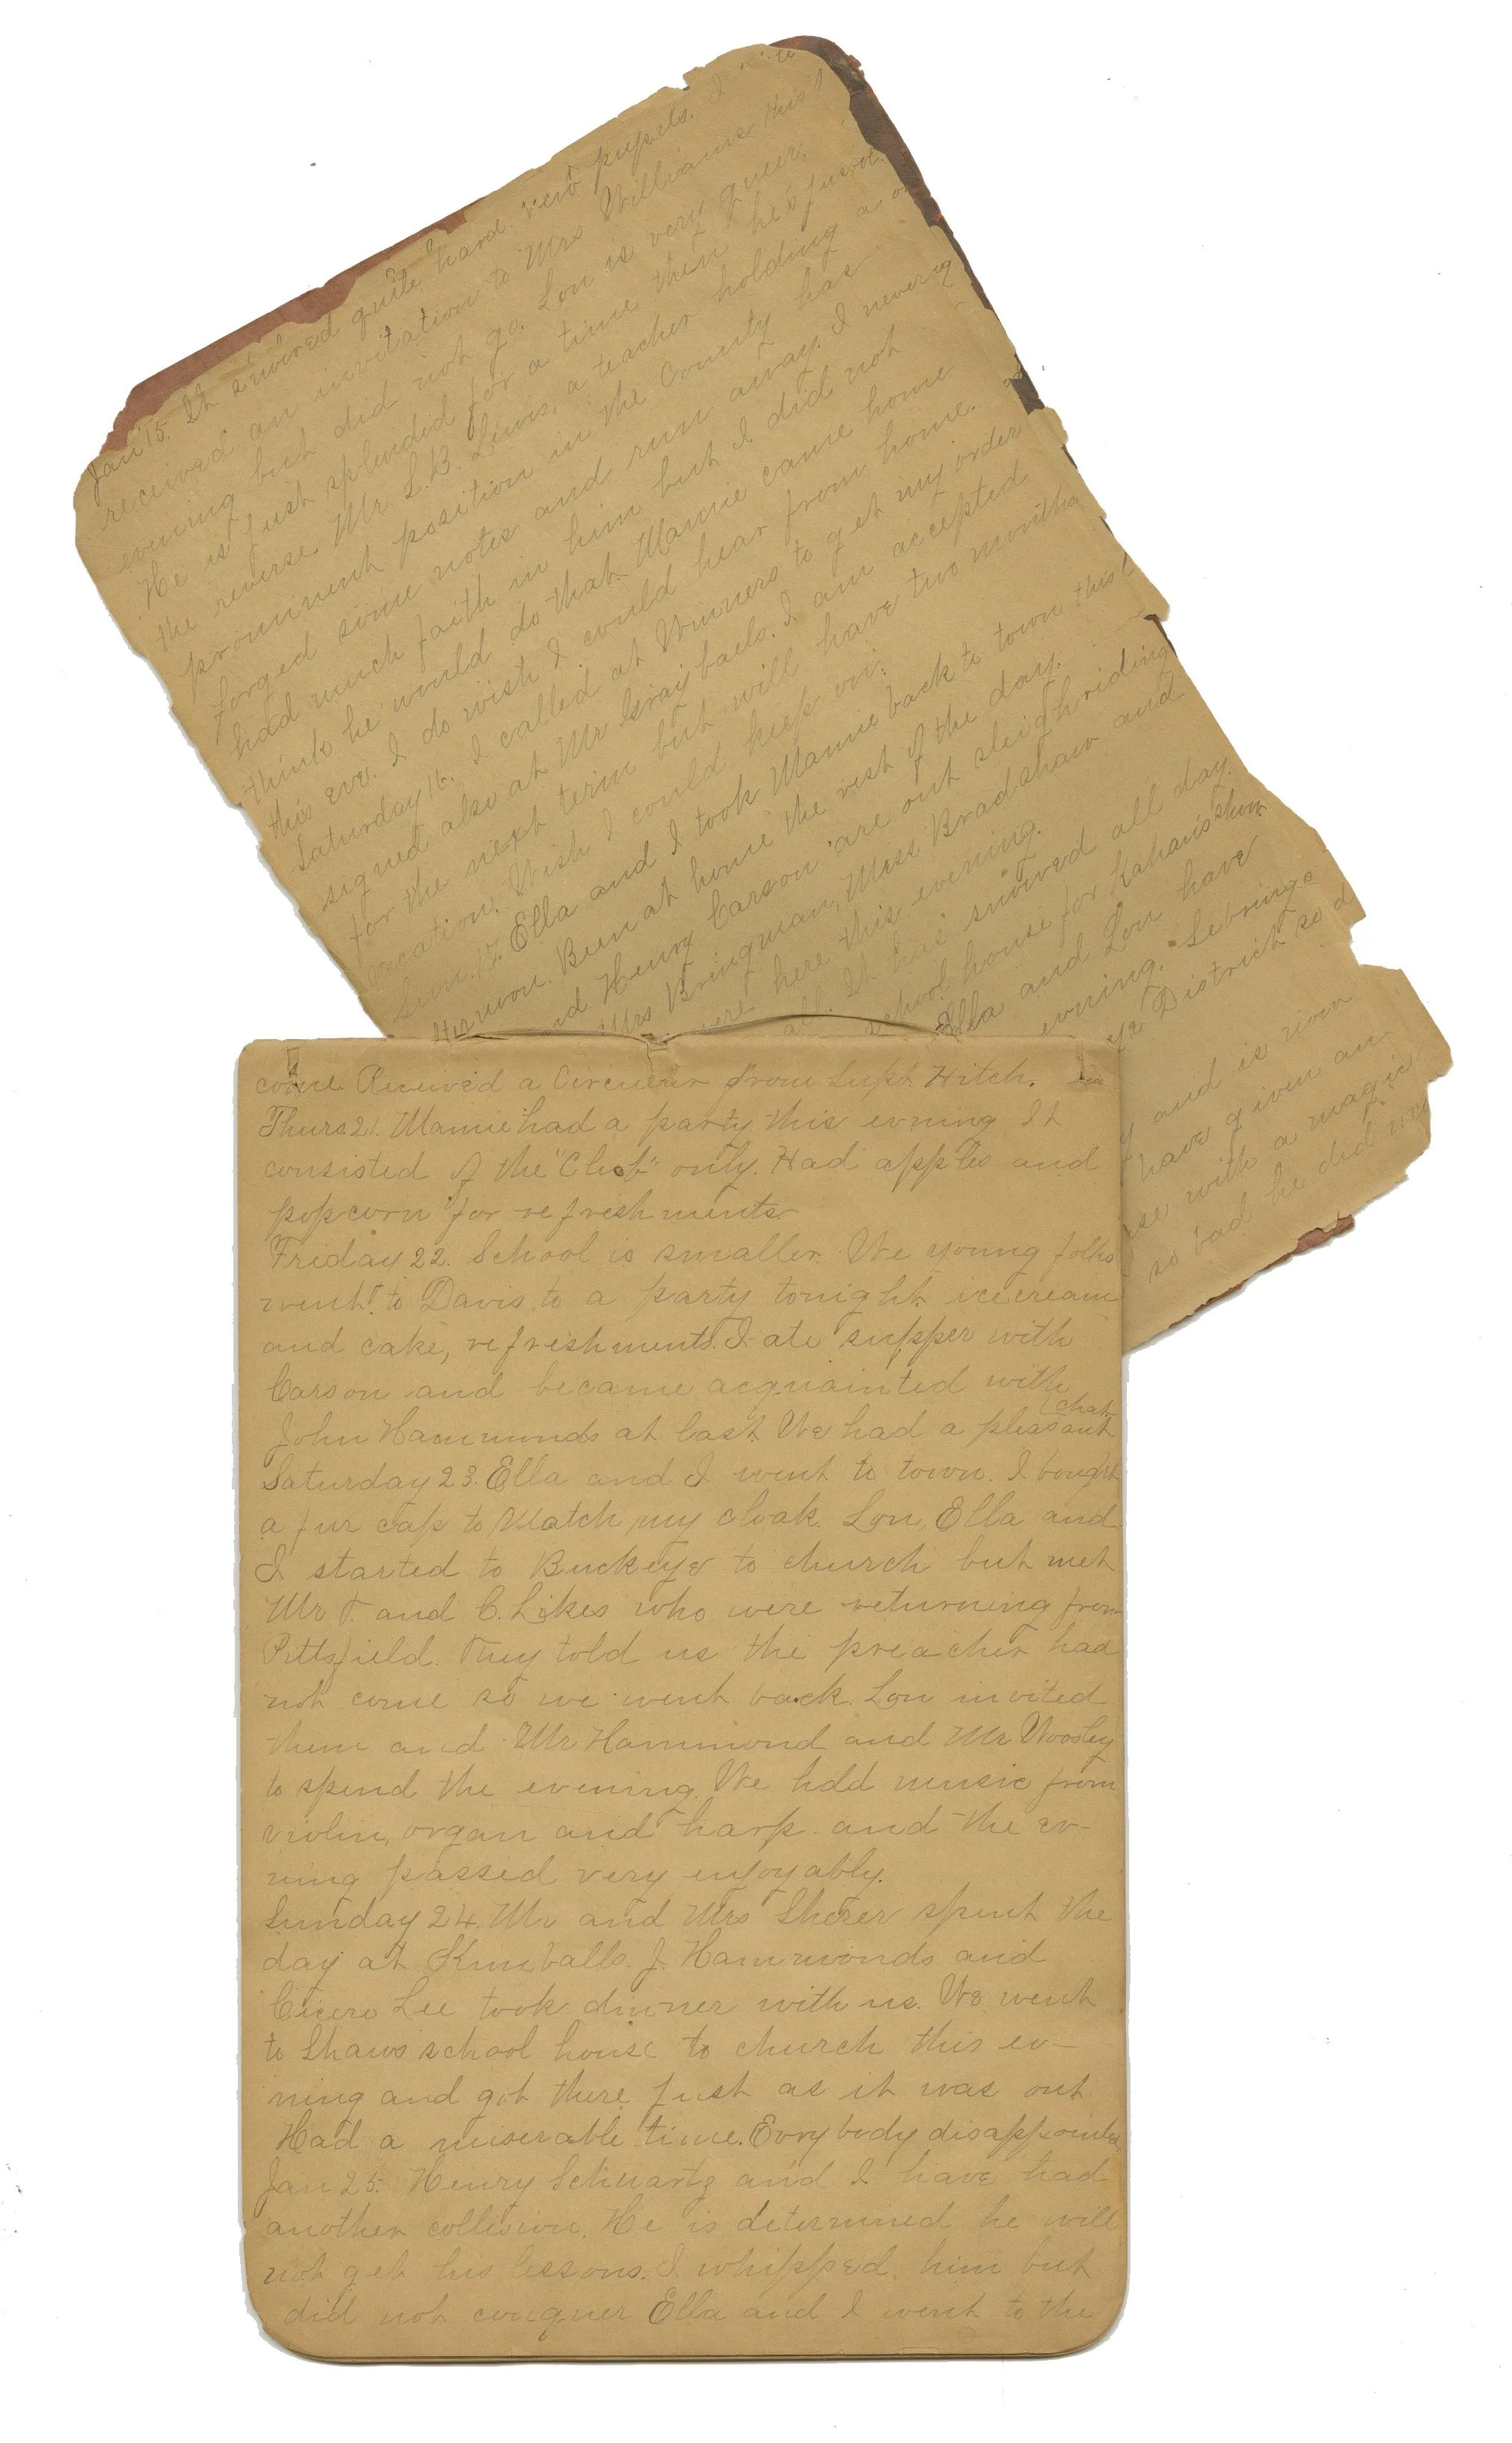 Jan 15. It snowed quite hard. few pupils. I
received an invitation to Mrs Williams this
evening but did not go. Lon is very queer.
He is just splendid for a time then he's just
the reverse. Mr L. B. Lewis, a teacher holding a
prominent position in the County has
forged some notes and run away. I never
had much faith in him but I did not
think he would do that. Mamie came home
this eve. I do wish I could hear from home.
Saturday 16. I called at Winners to get my order
signed also at Mr Graybaels. I am accepted
for the next term but will have two months
vacation. Wish I could keep on.
Sun. 17. Ella and I took Mamie back to town this
Been at home the rest of the day.
and Henry Carson are out sleighriding
Mrs Bringman, Miss Bradshaw and
here this evening.
all. It has snowed all day.
school house for Kahaus show
Ella and Lon have
evening. Lebrings
District so d
and is
have given an
with a magic
so bad he did
come. Received a Circular from Supt. Hitch.
Thurs 21. Mamie had a party this evning It
consisted of the "Club" only. Had apples and
popcorn for refreshments.
Friday 22. School is smaller. We young folks
went to Davis to a party tonight. icecream
and cake, refreshments. I ate supper with
Carson and became acquainted with
John Hammonds at last. We had a pleasant chat
Saturday 23. Ella and I went to town. I bought
a fur cap to match my cloak. Lon, Ella and
I started to Buckeye to church but met
Mr T. and C. Likes who were returning from
Pittsfield. They told us the preacher had
not come so we went back. Lon invited
them and Mr Hammond and Mr Woosley
to spend the evening. We hdd music from
violin, organ and harp and the ev-
ning passed very enjoyably.
Sunday 24. Mr and Mrs Sherer spent the
day at Kimballs. J. Hammonds and
Cicero Lee took dinner with us. We went
to Shaws school house to church this ev-
ning and got there just as it was out.
Had a miserable time. Evrybody disappointed.
Jan 25. Henry Schwartz and I have had
another collision. He is determined he will
not get his lessons. I whipped him but
did not conquer Ella and I went to the